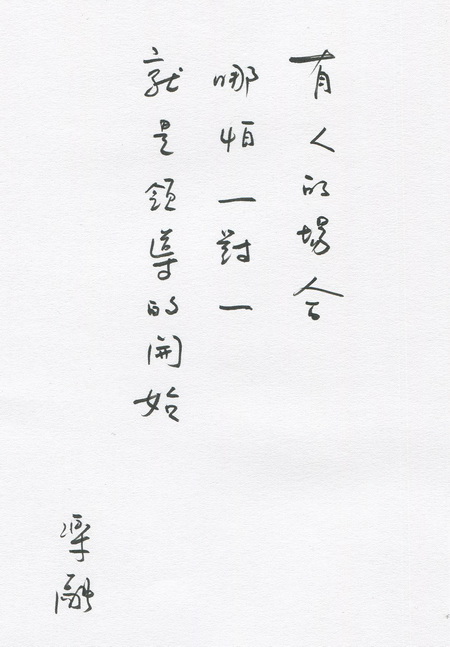 有人的場合
哪怕一對一
就是領導的開始